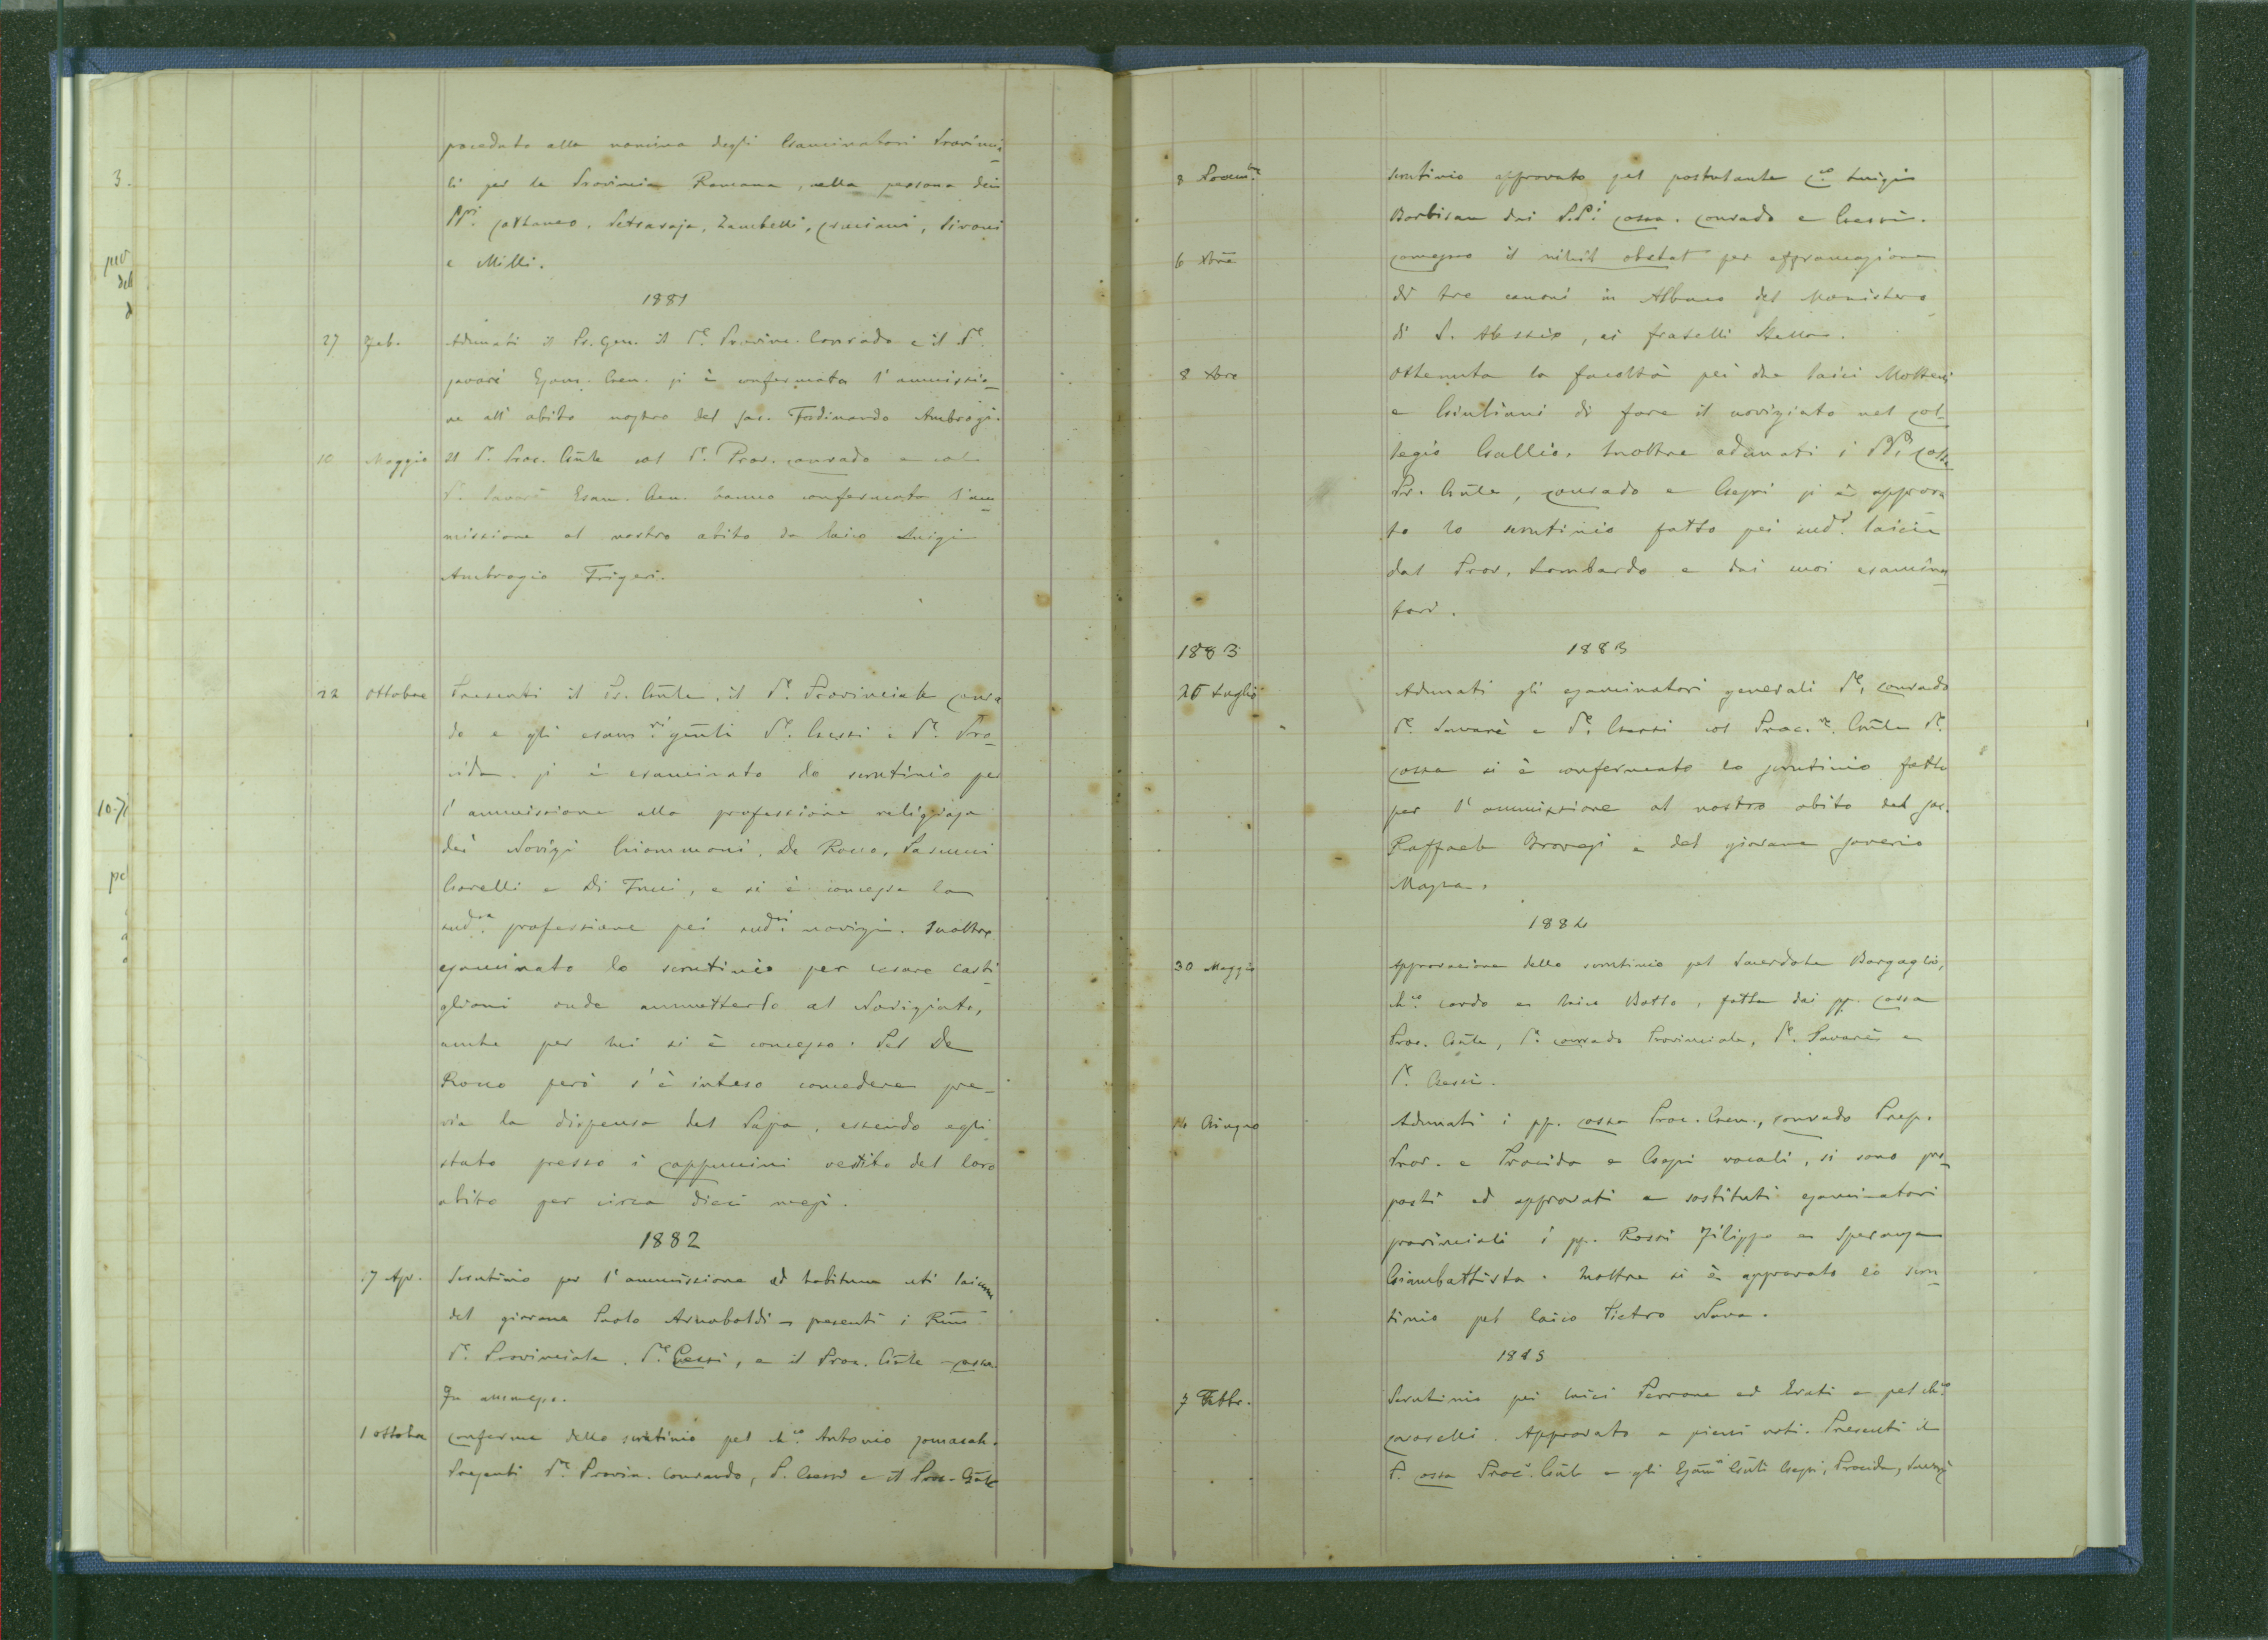 proceduto alla nomina degli Esaminatori Provincia-
li per la Provincia Romana, nella persona dei
PPri. Cattaneo, Zambelli, Graziani, Sironi
e Milli.
1881
27 Feb. Adunati il Pr. Gen. il Pe. Provinc. Conrado e il Pe.
Savarè Esam. Gen. si è confermata l'ammissio-
ne all'abito nostro del sac. Ferdinando Ambrogi.
10 Maggio Il Pe. Proc. Gñle col Pe. Prov. Conrado e col
Pe. Savarè Esam. Gen. hanno confermata l'am-
missione al nostro abito da laico Luigi
Ambrogio Frigeri.
22 Ottobre Presenti il Pr. Gñle, il Pe. Provinciale Conra
do e gli esamri gñli Pe. Gessi e Pe. Pro-
cida. si è esaminato lo scrutinio per
l'ammissione alla professione religiosa
dei Novizi Giammoni, De Rocco,
Gorelli e Di Tucci, e si è concessa la
sudra. professione pei suddi novizi. Inoltre
esaminato lo scrutinio per Cesare Casti-
glioni onde ammetterlo al Noviziato,
anche per lui si è concesso. Pel De
Rocco però s'è inteso concedere pre-
via la dispensa del Papa, essendo egli
stato presso i Cappuccini vestito del loro
abito per circa dieci mesi.
1882
17 Apr. Scrutinio per l'ammissione ad habitum uti laicum
del giovane Paolo Arnaboldi – presenti i Rmi
Pe. Provinciale, Pe. Gessi, e il Proc. Gñle Cossa
Fu ammesso.
1 Ottobre Conferma dello scrutinio pel chco. Antonio
Presenti Pe. Provin. Conrado, P. Gessi e il Proc. Gñle
3.
10.
8 Novembre scrutinio approvato pel postulante Cco. Luigi
Barbisan dai P.P.i Cossa, Conrado e Gessi.
6 Xbre Concesso il nihil obstat per affrancazione
di tre canoni in Albano del Monistero
di S. Alessio, ai fratelli Stella.
8 Xbre Ottenuta la facoltà pei due laici Molteni
e Giuliani di fare il noviziato nel Col-
legio Gallio. Inoltre adunati i PPi Cossa
Pr. Gñle, Conrado e Gessi si è approva
to lo scrutinio fatto pei sudi. laici
dal Prov. Lombardo e dai suoi esamina-
tori.
1883 1883
25 Luglio Adunati gli esaminatori generali Pe. Conrado
Pe. Savarè e Pe. Gessi col Proc.re Gñle Pe.
Cossa si è confermato lo scrutinio fatto
per l'ammissione al nostro abito del sac.
Raffaele Brovesi e del giovane Saverio
Massa.
1884
30 Maggio Approvazione dello scrutinio pel Sacerdote Bargaglio,
chco. Cardo e laico Botto, fatta dai pp. Cossa
Proc. Gñle, Pe. Conrado Provinciale, Pe. Savarè e
Pe. Gessi.
14 Giugno Adunati i pp. Cossa Proc. Gen., Conrado Prep.
Prov. e Procida e Gessi vocali, si sono pro-
posti ed approvati a sostituti esaminatori
provinciali i pp. Rossi Filippo e Speranza
Giambattista. Inoltre si è approvato lo scru-
tinio pel laico Pietro Nava.
1885
7 Febbr. Scrutinio pei laici Perrone ed Erati e pel chco
Caroselli. Approvato a pieni voti. Presenti il
P. Cossa Proc. Gñle e gli Esami Gñli Gessi, Procida, Savarè